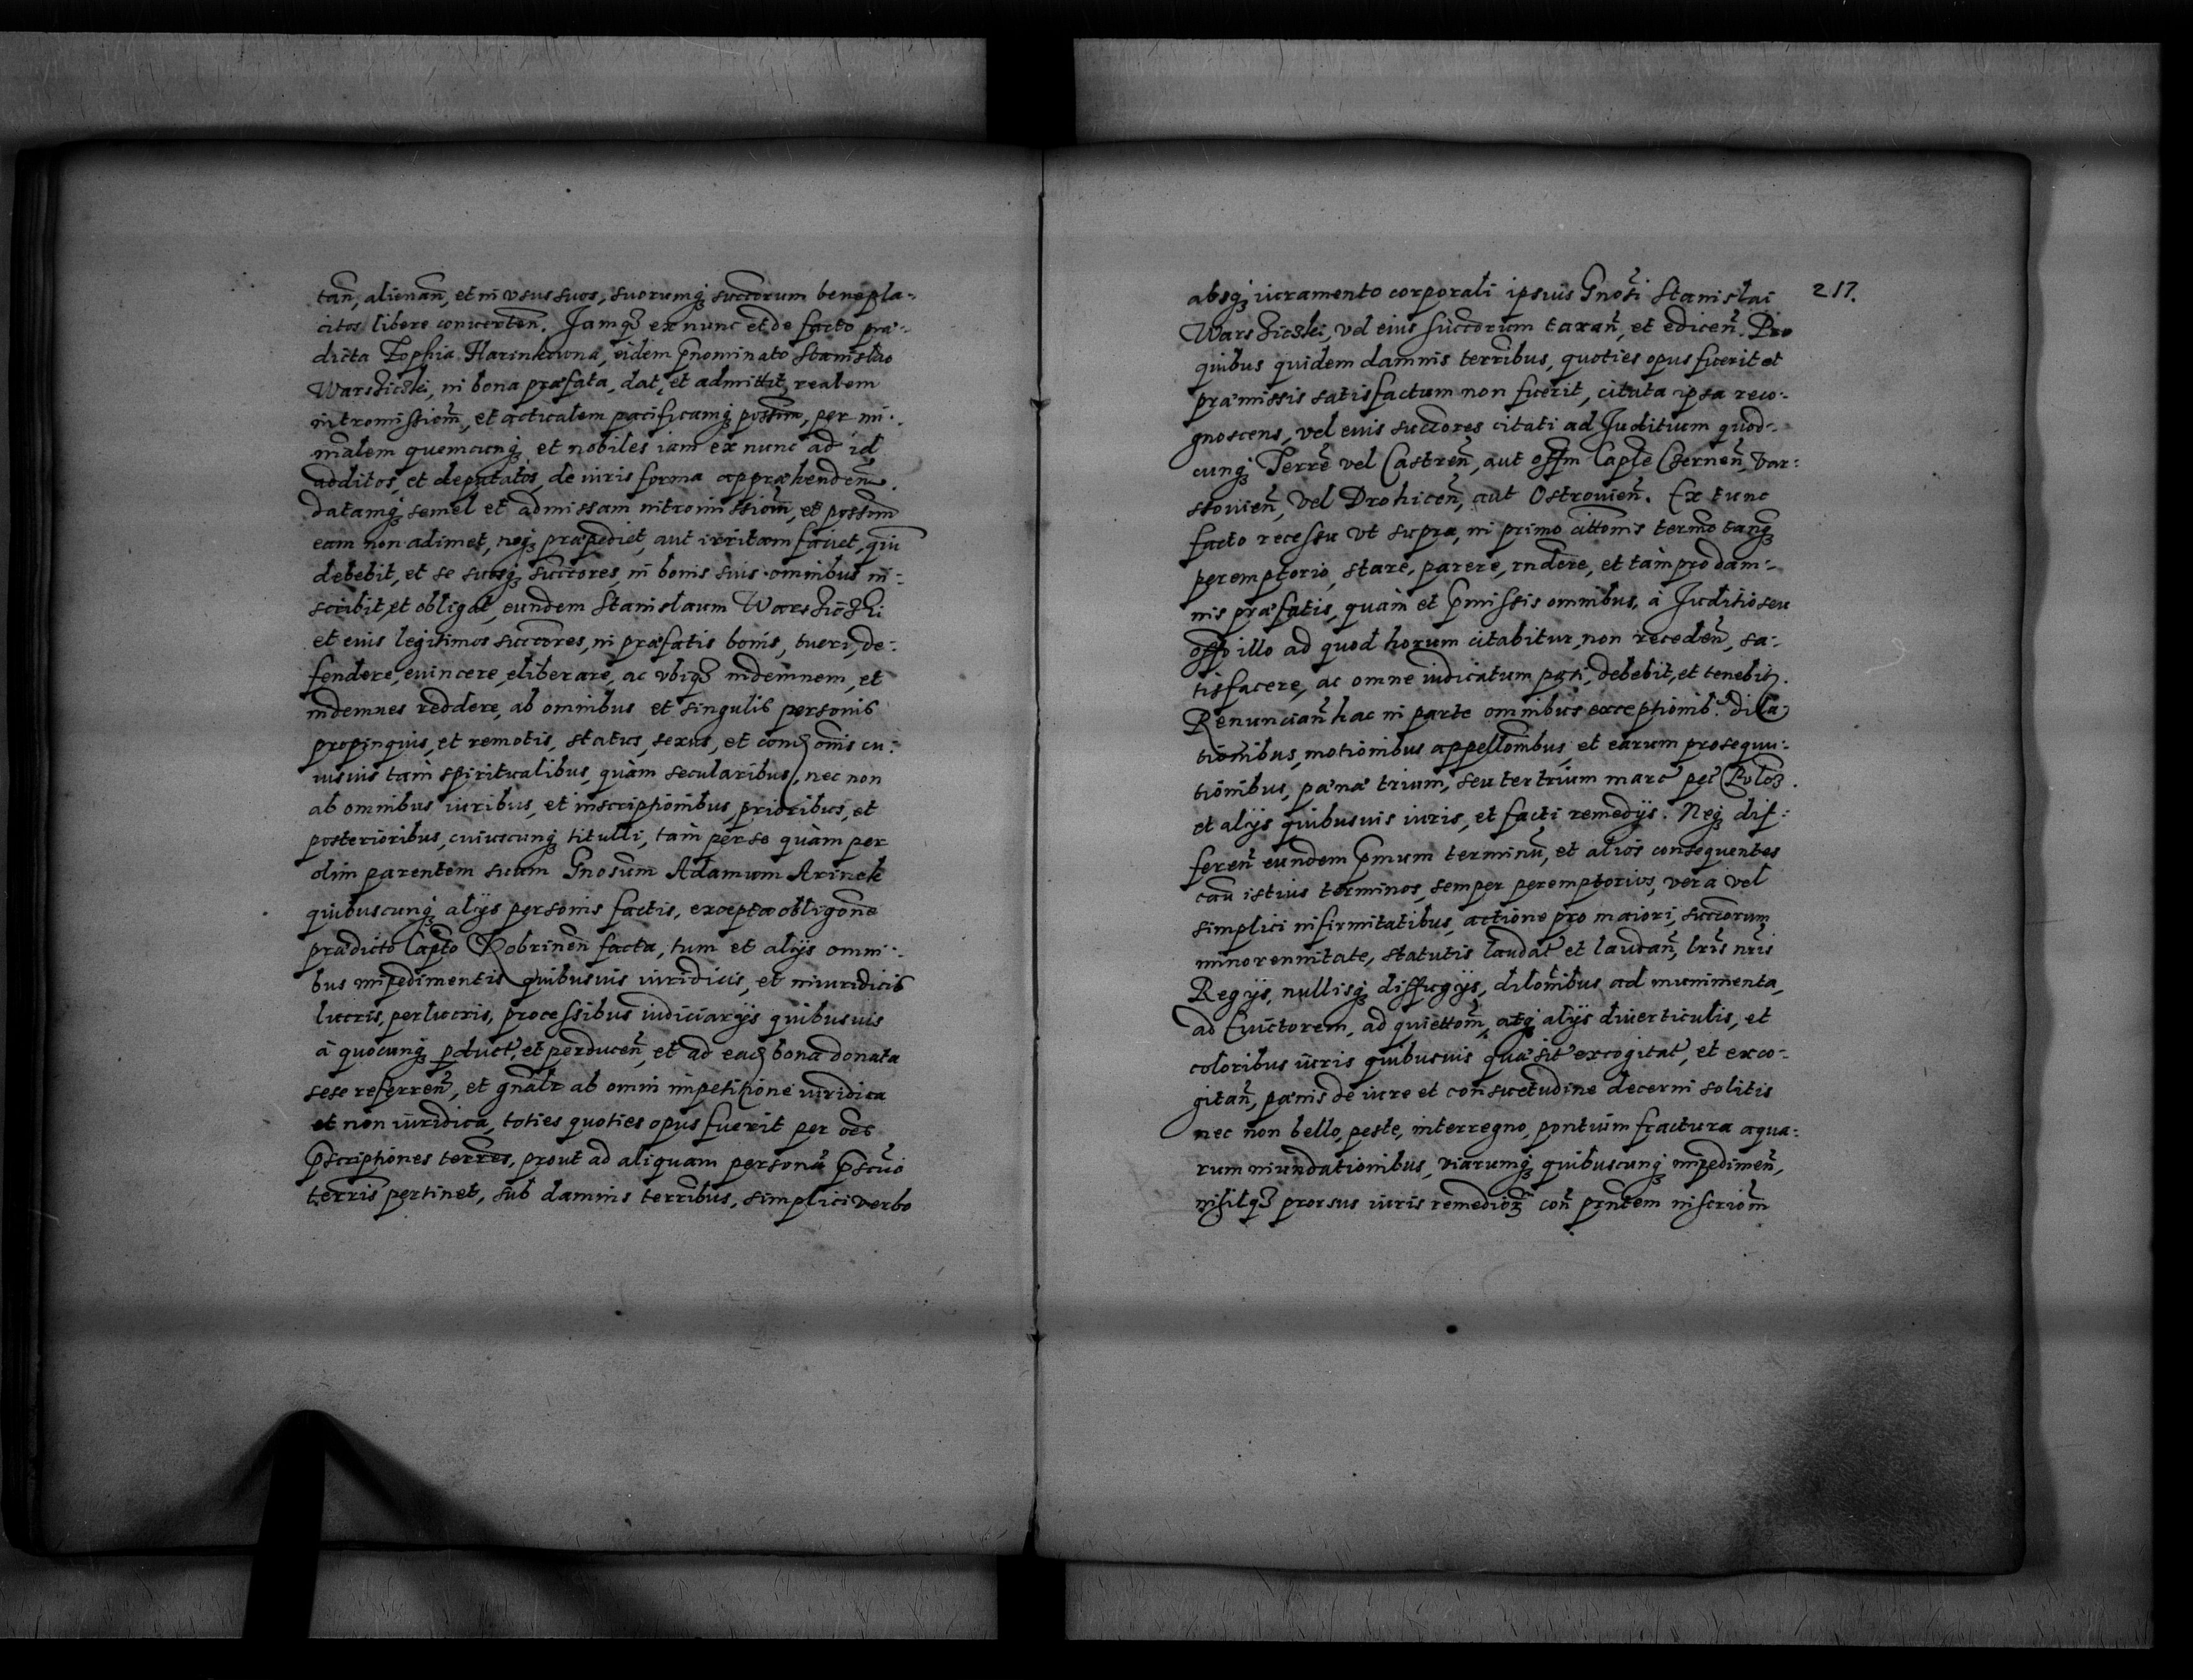 tan̄, alienan̄, et in vsus suos, suorumq; succorum benepla-
citos libere conuerten̄. Jamq; ex nunc et de facto præ-
dicta Zophia Harinkowna, eidem p̄nominato Stanislao
Warsziczki, in bona præfata, dat, et admittit, realem
intromissiōm, et actualem pacificamq; possm̄, per mi-
n̄alem quemcunq; et nobiles iam ex nunc ad id
additos, et deputatos, de iuris forma appræhenden̄.
datamq; semel et admissam intromissiōm, et possm̄
eam non adimet, neq; præpediet, aut irritam faciet, quin
debebit, et se suosq; succores, in bonis suis omnibus in-
scribit, et obligat, eundem Stanislaum Warsziczki
et eius legitimos succores, in præfatis bonis, tueri, de-
fendere, euincere, eliberare, ac vbiq; indemnem, et
indemnes reddere, ab omnibus et singulis personis
propinquis, et remotis, status, sexus, et condōnis cu-
iusuis tam̀ spiritualibus, quàm secularibus, nec non
ab omnibus iuribus, et inscriptionibus, prioribus, et
posterioribus, cuiuscunq; titulli, tam̀ per se quàm per
olim parentem suum Gnosum Adamum Arinek
quibuscunq; alijs personis factis, excepta obligōne
prædicto Capto Kobrinen̄ facta, tum et alijs omni-
bus impedimentis quibusuis iuridicis, et iniuridicis
lucris, perlucris, processibus iudiciarijs quibusuis
à quocunq; p̄duct, et perducen̄, et ad ead bona donata
sese referren̄, et gn̄alr ab omni impetitione iuridica
et non iuridica, toties quoties opus fuerit per oēs
p̄scriptiones terrēs, prout ad aliquam personā
terris pertinet, sub damnis terribus, simplici verbo
217.
absq; iuramento corporali ipsius Gnosi Stanislai
Warsziczki, vel eius succorum taxan̄, et edicen̄. Pro
quibus quidem damnis terribus, quoties opus fuerit et
præmissis satisfactum non fuerit, citata ipsa reco-
gnoscens, vel eius succores citati ad Juditium quod-
cunq; Terrē vel Castren̄, aut offm Captē Czernen̄, Var-
stouien̄, vel Drohicen̄, aut Ostrouien̄. Ex tunc
facto recessu vt supra, in primo cittonis termo tanq;
peremptorio, stare, parere, rndere, et tàm pro dam-
nis præfatis, quàm et p̄missis omnibus, à Juditio seu
offo illo ad quod horum citabitur, non receden̄, sa-
tisfacere, ac omne iudicatum pati, debebit, et tenebit.
Renuncian̄ hac in parte omnibus exceptionib. dila-
tionibus, motionibus appellōnibus, et earum prosequu-
tionibus, pæna trium, seu ter trium marc pec Polō.
et alijs quibusuis iuris, et facti remedijs. Neq; dif-
feren̄ eundem p̄mum terminū, et alios consequentes
cau istius terminos, semper peremptorios, vera vel
simplici infirmitatibus, actione pro maiori, succorum
minorennitate, statutis laudat et laudan̄, lris nris
Regijs, nullisq; diffugijs, dilonibus ad munimenta,
ad Euictorem, ad quiettōm, atq; alijs diuerticulis, et
coloribus iuris quibusuis quæsit excogitat, et exco-
gitan̄, pænis de iure et consuetudine decerni solitis
nec non bello, peste, interregno, pontium fractura aqua-
rum inundationibus, viarumq; quibuscunq; impedimen̄,
nihilq; prorsus iuris remediorū con prntem inscriōm